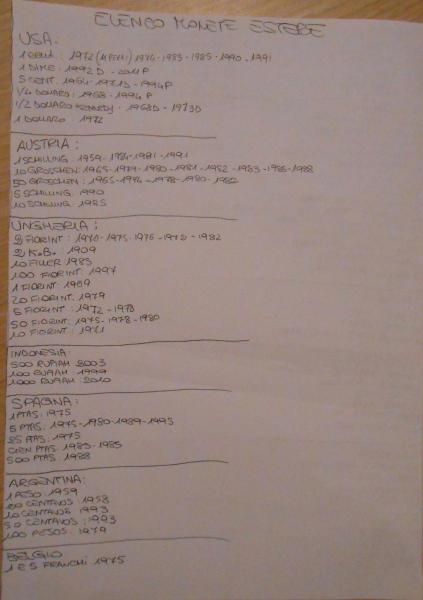 ELENCO MONETE ESTERE
USA:
1972 1974-1983-1985-1990-1991
1 DIME: 1992D - 2011P
5 CENT. 1964-1971D-1994P
1/4 DOLLARO: 1968-1994P
1/2 DOLLARO KENNEDY: 1968D-1973D
1 DOLLARO: 1972
AUSTRIA:
1 SCHILLING: 1959-1981-1991
10 GROSCHEN: 1965-1979-1980-1981-1982-1983-1986-1988
50 GROSCHEN: 1965-1974-1978-1980-1982
5 SCHILLING 1990
10 SCHILLING: 1985
UNGHERIA:
2 FIORINT: 1970-1975-1976-1979-1982
1909
10 FILLER 1983
100 FIORINT: 1997
1 FIORINT: 1969
20 FIORINT. 1979
5 FIORINT: 1972-1978
50 FIORINT: 1975-1978-1980
10 FIORINT: 1971
INDONESIA
500 RUPIAH 2003
100 RUPIAH: 1999
1000 RUPIAH: 2010
SPAGNA:
1 PTAS: 1975
5 PTAS: 1975-1980-1989-1993
25 PTAS: 1975
CIEN PTAS: 1983-1985
500 PTAS: 1988
ARGENTINA:
1 PESO: 1959
20 CENTAVOS: 1958
10 CENTAVOS 1993
50 CENTAVOS: 1993
100 PESOS: 1979
BELGIO
1 E 5 FRANCHI 1975